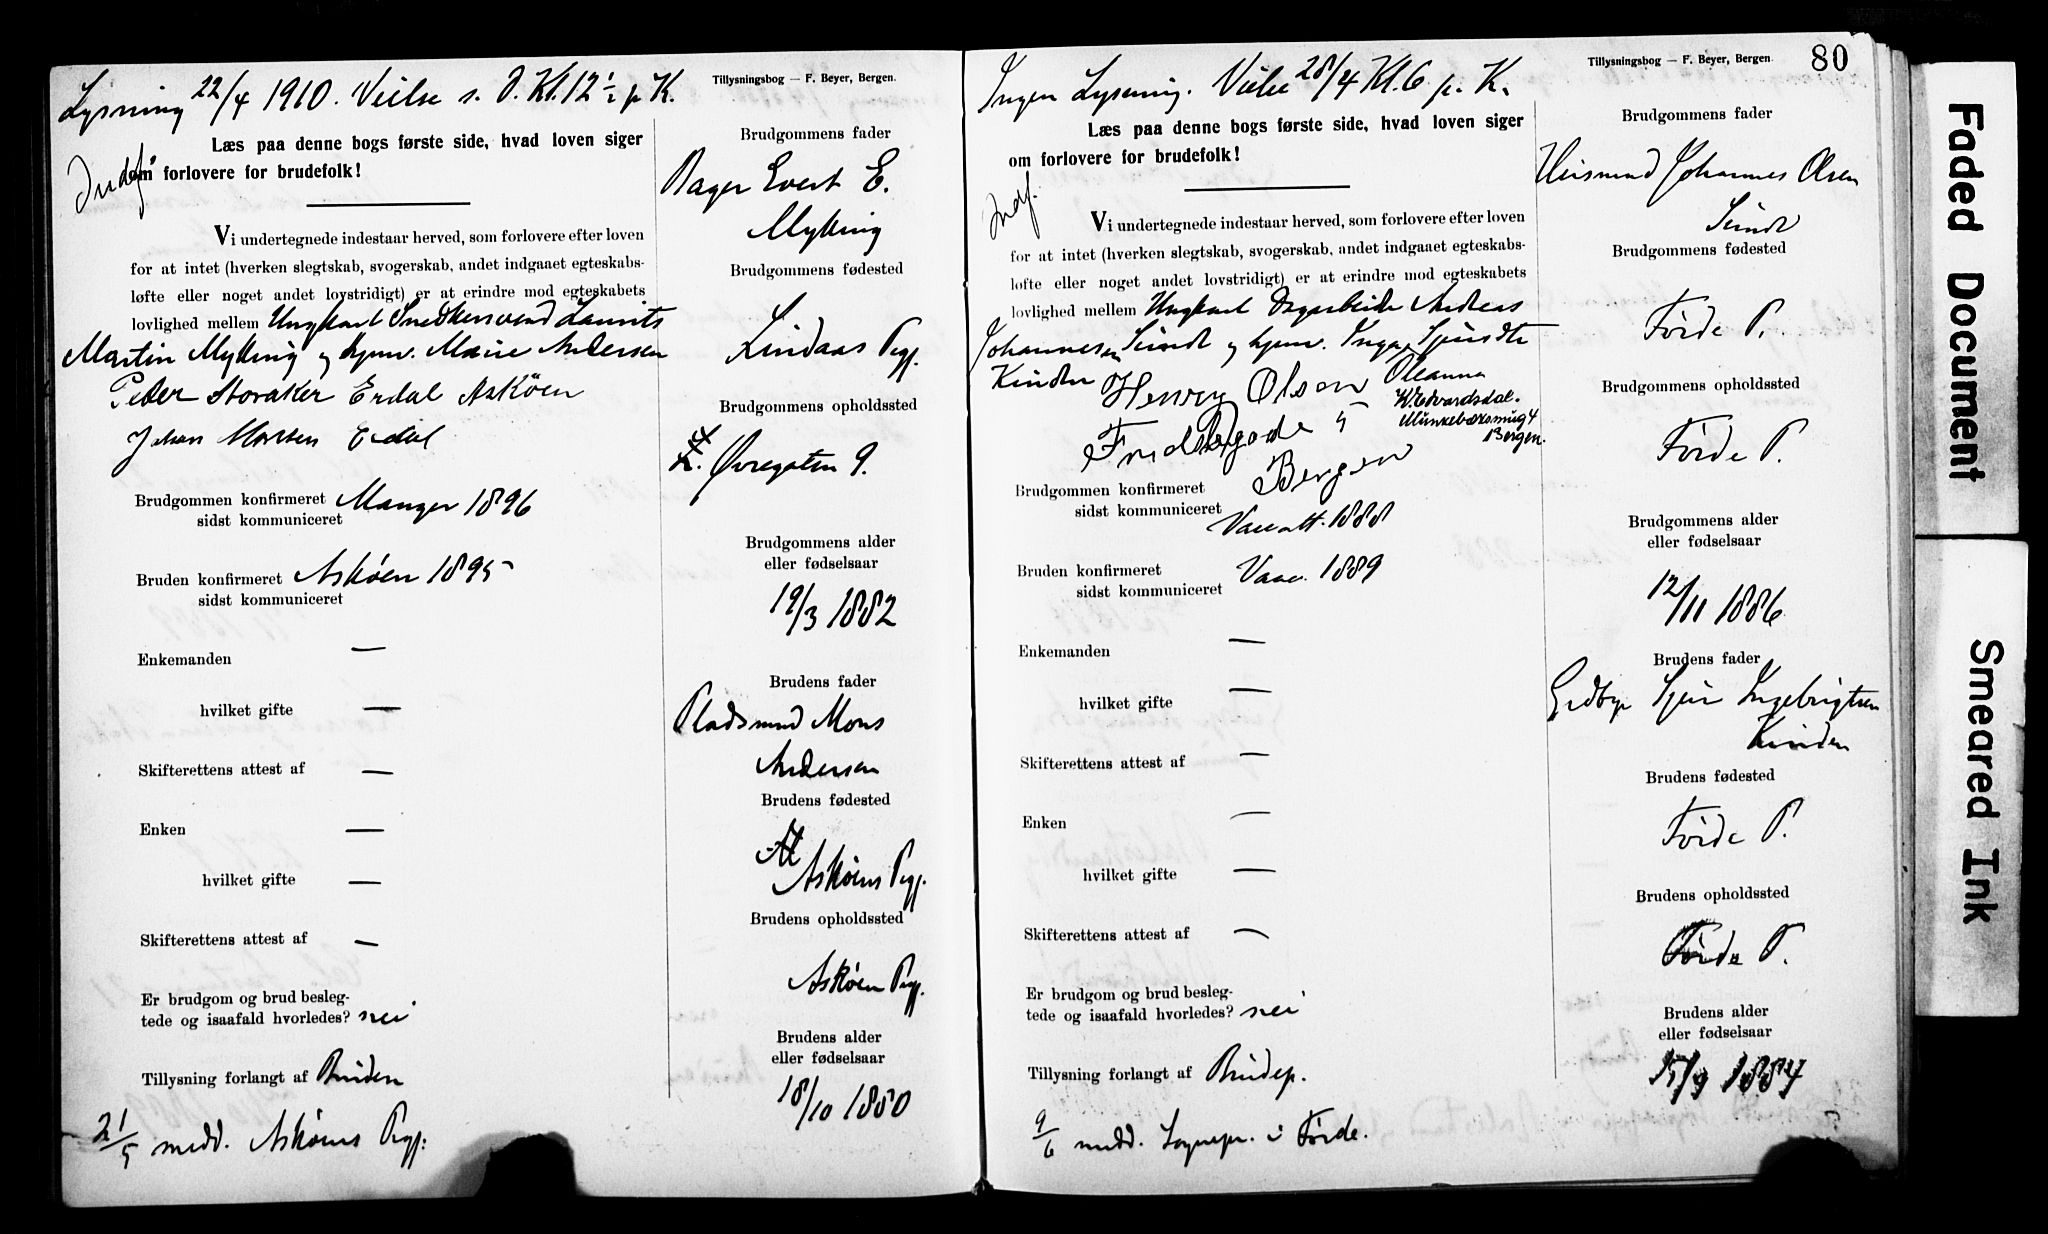 Lysning 22/4 1910. Vielse s. D. Kl. 12 1/2 p K.
Tillysningsbog — F. Beyer, Bergen.
Indf.
Læs paa denne bogs første side, hvad loven siger
om forlovere for brudefolk!
Vi undertegnede indestaar herved, som forlovere efter loven
for at intet (hverken slegtskab, svogerskab, andet indgaaet egteskabs-
løfte eller noget andet lovstridigt) er at erindre mod egteskabets
lovlighed mellem Ungkarl Snedkersvend Laurits
Martin Mykking og pjnv. Marie Andersen
Peder Storaker Erdal Askøen
Johan Morsen Erdal
Brudgommen konfirmeret Manger 1896
sidst kommuniceret
Bruden konfirmeret Askøen 1895
sidst kommuniceret
Enkemanden —
hvilket gifte —
Skifterettens attest af —
Enken —
hvilket gifte —
Skifterettens attest af —
Er brudgom og brud besleg-
tede og isaafald hvorledes? nei
Tillysning forlangt af Bruden
21/5 medd. Askøens Prgj:
Brudgommens fader
Bager Evert E.
Mykking
Brudgommens fødested
Lindaas Prgj.
Brudgommens opholdssted
Øvregaten 9.
Brudgommens alder
eller fødselsaar
19/3 1882
Brudens fader
Pladsmand Mons
Andersen
Brudens fødested
Askøens Prgj.
Brudens opholdssted
Askøen Prgj.
Brudens alder
eller fødselsaar
18/10 1880
Ingen Lysning. Vielse 28/4 Kl. 6 p. K.
Tillysningsbog — F. Beyer, Bergen.
80
Indf.
Læs paa denne bogs første side, hvad loven siger
om forlovere for brudefolk!
Vi undertegnede indestaar herved, som forlovere efter loven
for at intet (hverken slegtskab, svogerskab, andet indgaaet egteskabs-
løfte eller noget andet lovstridigt) er at erindre mod egteskabets
lovlighed mellem Ungkarl Dagarbeider Andreas
Johannesen Sunde og pjnv. Inga Sjursdtr
Kinden
Henry Olsen
5
Bergen
Oleanna
W. Edvardsdal.
Munkebæksmug 4
Bergen.
Brudgommen konfirmeret
sidst kommuniceret Vaccatt. 1888
Bruden konfirmeret Vacc. 1889
sidst kommuniceret
Enkemanden —
hvilket gifte —
Skifterettens attest af —
Enken —
hvilket gifte —
Skifterettens attest af —
Er brudgom og brud besleg-
tede og isaafald hvorledes? nei
Tillysning forlangt af Brudep.
9/6 medd. Sognepr. i Førde.
Brudgommens fader
Husmand Johannes Olsen
Sunde
Brudgommens fødested
Førde P.
Brudgommens opholdssted
Førde P.
Brudgommens alder
eller fødselsaar
12/11 1886
Brudens fader
Grdbr. Sjur Ingebrigtsen
Kinden
Brudens fødested
Førde P.
Brudens opholdssted
Førde P.
Brudens alder
eller fødselsaar
15/9 1887
Faded Document
Smeared Ink